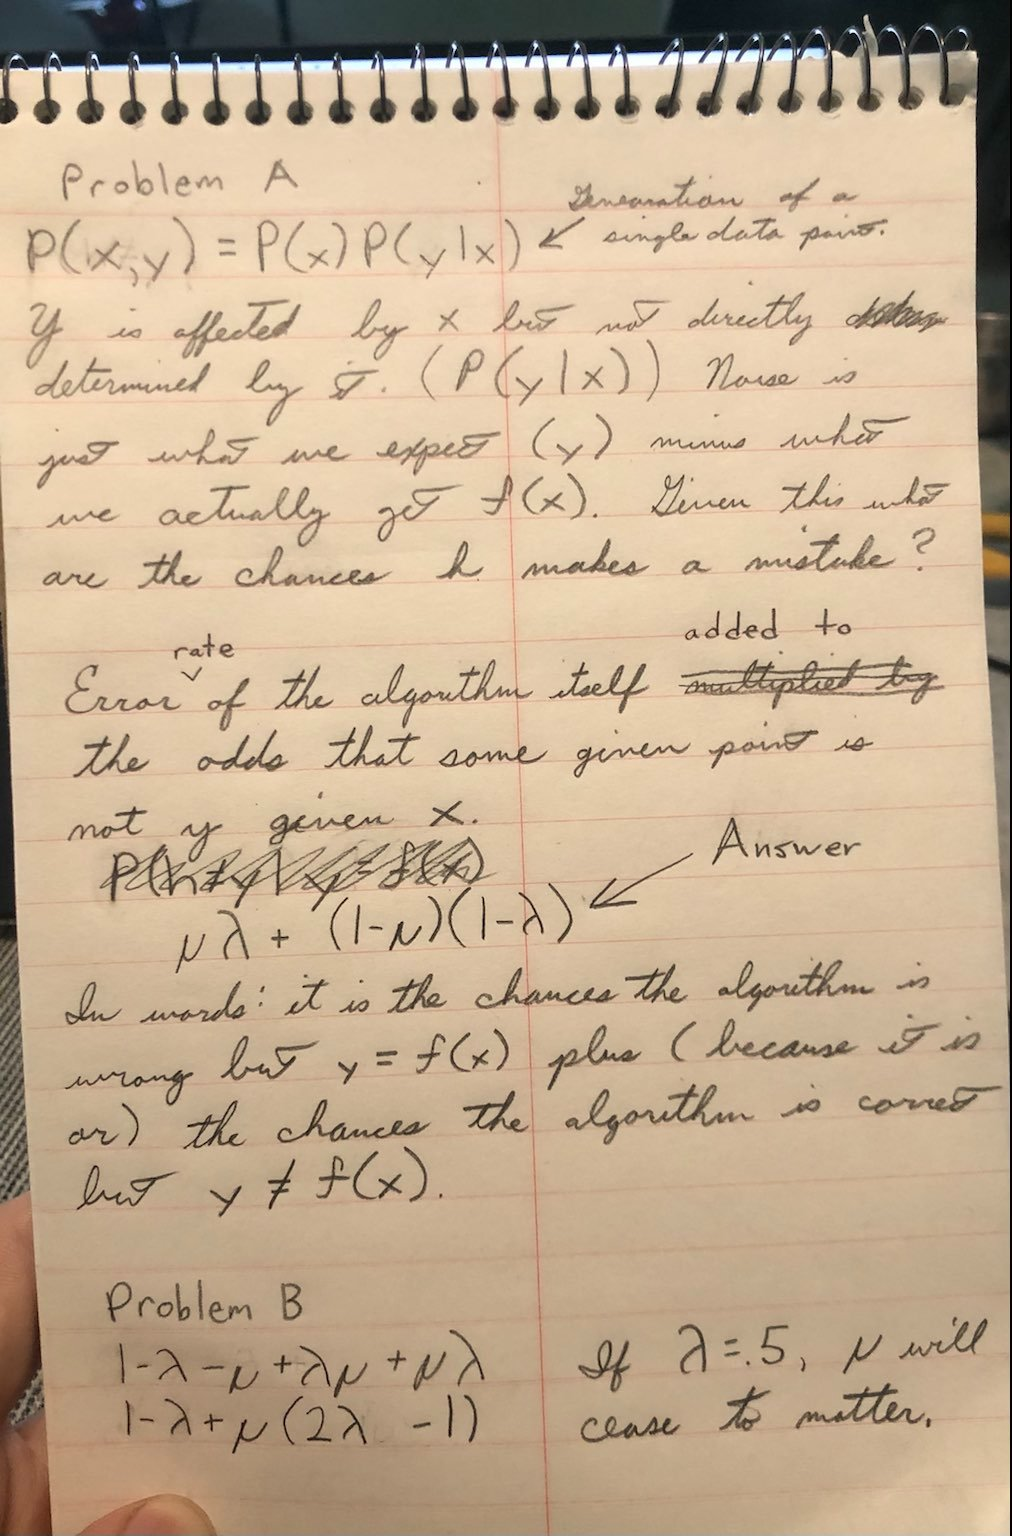 Problem A
Generation of a
single data point.
P(x,y) = P(x)P(y|x)
Y is affected by x but not directly
determined by it. (P(y|x)) Noise is
just what we expect (y) minus what
we actually get f(x). Given this what
are the chances h makes a mistake?
rate added to
Error of the algorithm itself multiplied by
the odds that some given point is
not y given x.
Answer
μλ + (1-μ)(1-λ)
In words: it is the chances the algorithm is
wrong but y = f(x) plus (because it is
or) the chances the algorithm is correct
but y ≠ f(x).
Problem B
1-λ-μ+λμ+μλ
1-λ+μ(2λ -1)
If λ=.5, μ will
cease to matter.